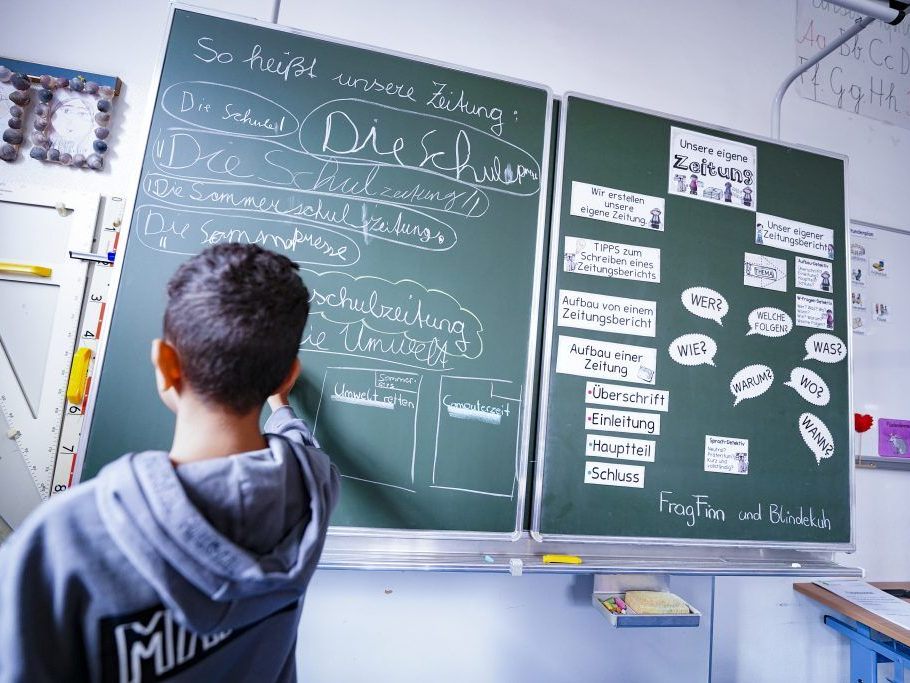 So heißt unsere Zeitung:
Die Schule!
Die Schulpresse
"Die Schulzeitung!"
"Die Sommerschul zeitung"
"Die
schulzeitung
ie Umwelt
Sommer-
Umwelt retten
Computerzeit
Unsere eigene
Zeitung
Wir erstellen
unsere
eigene Zeitung
Unser eigener
Zeitungsbericht
TIPPS zum
Schreiben eines
Zeitungsberichts
THEMA
Aufbau von einem
Zeitungsbericht
WER?
WELCHE
FOLGEN?
WIE?
WAS?
Aufbau einer
Zeitung
WARUM?
WO?
•Überschrift
•Einleitung
WANN?
•Hauptteil
•Schluss
Sprach-Detektiv
Kurz und
vollständig?
FragFinn und Blindekuh
Aa Bb Cc D
Ff Gg Hh
3
4
6
7
8